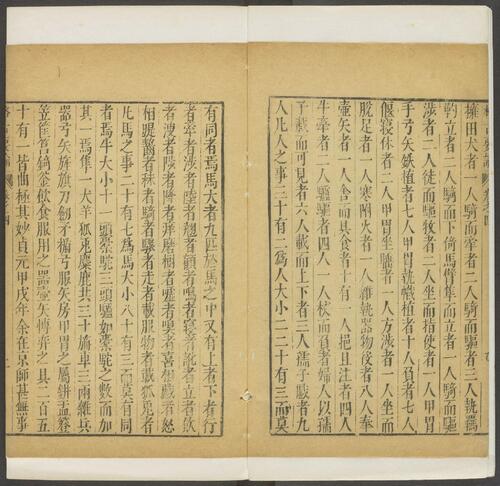 擁田犬者一人騎而牽者二人騎而驅者三人執羈
靮立者二人騎而下倚馬臂隼而立者一人騎而驅
涉者二人徒而驅牧者二人坐而指使者一人甲冑
手弓矢鈇鉞植者七人甲冑執幟植者十人負者七人
偃寢休者二人甲冑坐睡者一人方涉者一人坐而
脫足者一人寒附火者一人雜執器物役者八人奉
壺矢者一人舍而具食者十有一人挹且注者四人
牛牽者二人驢驅者四人一人杖而負者婦人以孺
子載而可見者六人載而上下者三人孺子戲者九
人凡人之事三十有二爲人大小百二十有三而莫
有同者焉馬大者九匹於馬之中又有上者下者行
者牽者涉者陸者翹者顧者鳴者寢者訛者立者飲
者溲者陟者降者痒磨樹者噓者嗅者喜相戲者怒
相踶齧者秣者騎者驟者走者載服物者載狐兔者
凡馬之事二十有七爲馬大小八十有三而莫有同
者焉牛大小十一頭橐駝三頭驢如橐駝之數而加
其一焉隼一犬羊狐兔麋鹿共三十旃車三兩雜兵
器弓矢旌旗刀劍矛楯弓服矢房甲冑之屬缾盂簦
笠筐筥錡釜飲食服用之器壺矢博弈之具二百五
十有一皆曲極其妙貞元甲戌年余在京師甚無事